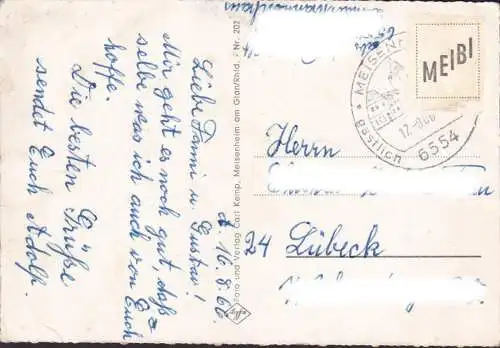 Nr. 202
Foto und Verlag Carl Kemp, Meisenheim am Glan/Rhld.
d. 16.8.66
Liebe Fanni u. Gustav!
Mir geht es noch gut, daß
selbe was ich auch von Euch
hoffe.
Die besten Grüße
sendet Euch Adolf.
MEIBI
MEISEN
Basilien
6554
Herrn
24 Lübeck